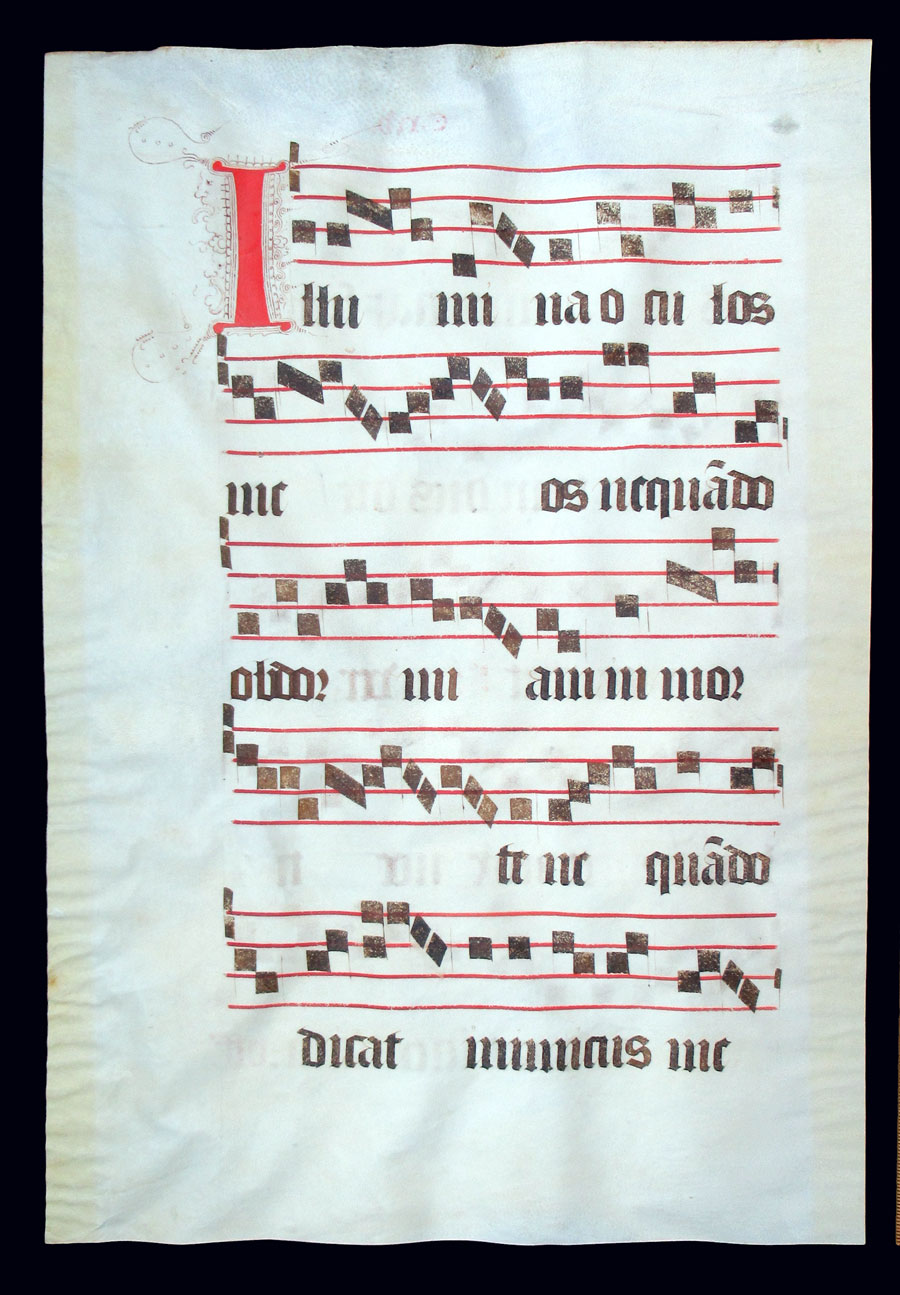 Illu mi na o cu los
me os nequãdo
obdor mi am in mor
te ne quãdo
dicat inimicus me